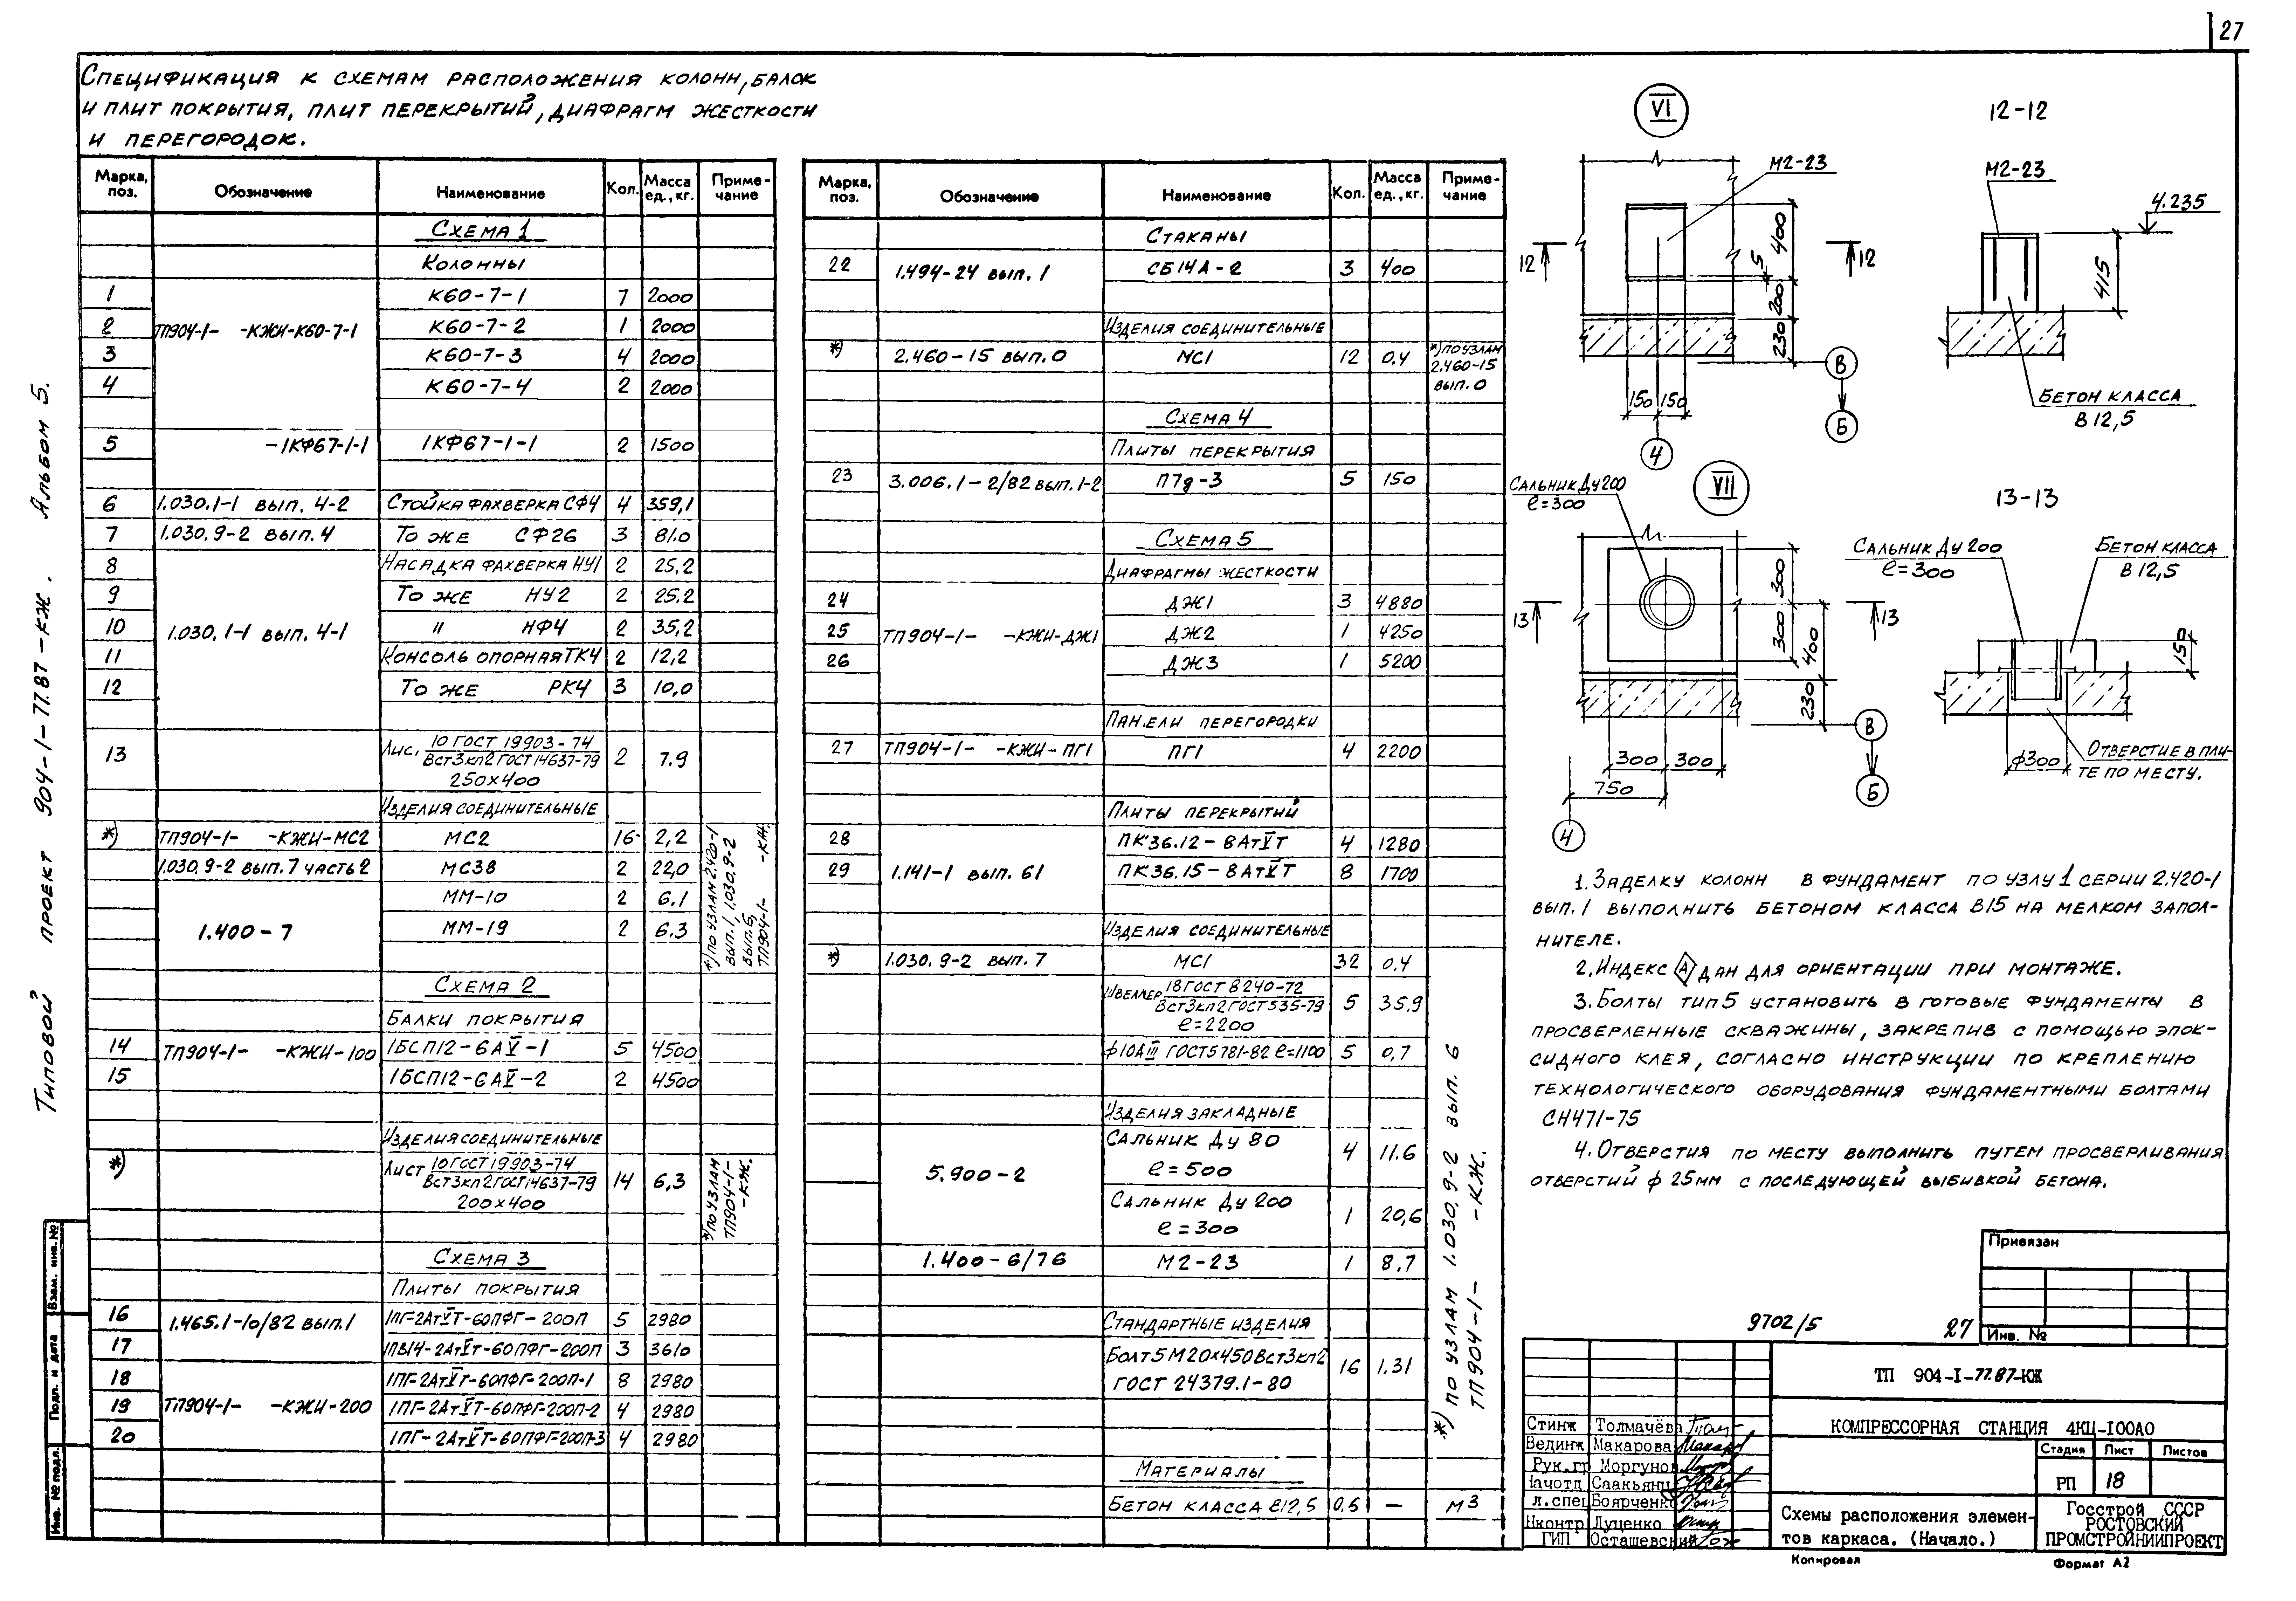 27
Спецификация к схемам расположения колонн, балок
и плит покрытия, плит перекрытий, диафрагм жесткости
и перегородок.
Типовой проект 904-1-77.87-КЖ. Альбом 5.
Марка, поз. Обозначение Наименование Кол. Масса ед., кг. Приме-чание
Схема 1
Колонны
1 К60-7-1 7 2000
2 ТП904-1- -КЖИ-К60-7-1 К60-7-2 1 2000
3 К60-7-3 4 2000
4 К60-7-4 2 2000
5 -1КФ67-1-1 1КФ67-1-1 2 1500
6 1.030.1-1 вып. 4-2 Стойка фахверка СФ4 4 359,1
7 1.030.9-2 вып. 4 То же СФ26 3 81.0
8 Насадка фахверка НУ1 2 25,2
9 То же НУ2 2 25.2
10 1.030.1-1 вып. 4-1 " НФ4 2 35,2
11 Консоль опорная ТК4 2 12,2
12 То же РК4 3 10,0
13 Лис. 10 ГОСТ 19903-74
Вст3кп2 ГОСТ 14637-79 2 7.9
250×400
Изделия соединительные
*) ТП904-1- -КЖИ-МС2 МС2 16 2,2
1.030.9-2 вып. 7 часть 2 МС38 2 22,0
ММ-10 2 6.1
1.400-7 ММ-19 2 6.3
*) по узлам 2.420-1
вып. 1, 1.030.9-2
вып.6,
ТП904-1- -КЖ.
Схема 2
Балки покрытия
14 ТП904-1- -КЖИ-100 1БСП12-6АV-1 5 4500
15 1БСП12-6АV-2 2 4500
Изделия соединительные
*) Лист 10 ГОСТ 19903-74
Вст3кп2 ГОСТ 14637-79 14 6,3
200×400
*) по узлам
ТП904-1-
-КЖ.
Схема 3
Плиты покрытия
16 1.465.1-10/82 вып.1 1ПГ-2АтVТ-60ПФГ-200П 5 2980
17 1ПВ14-2АтVТ-60ПФГ-200П 3 3610
18 1ПГ-2АтVТ-60ПФГ-200П-1 8 2980
19 ТП904-1- -КЖИ-200 1ПГ-2АтVТ-60ПФГ-200П-2 4 2980
20 1ПГ-2АтVТ-60ПФГ-200П-3 4 2980
Взам. инв. №
Подп. и дата
Инв. № подл.
Марка, поз. Обозначение Наименование Кол. Масса ед., кг. Приме-чание
Стаканы
22 1.494-24 вып. 1 СБ14А-2 3 400
Изделия соединительные
*) 2.460-15 вып. 0 МС1 12 0.4 *) по узлам
2.460-15
вып. 0
Схема 4
Плиты перекрытия
23 3.006.1-2/82 вып. 1-2 П7д-3 5 150
Схема 5
Диафрагмы жесткости
24 ДЖ1 3 4880
25 ТП904-1- -КЖИ-ДЖ1 ДЖ2 1 4250
26 ДЖ3 1 5200
Панели перегородки
27 ТП904-1- -КЖИ-ПГ1 ПГ1 4 2200
Плиты перекрытий
28 ПК 36.12-8АтVТ 4 1280
29 1.141-1 вып. 61 ПК 36.15-8АтVТ 8 1700
Изделия соединительные
*) 1.030.9-2 вып. 7 МС1 32 0.4
Швеллер 18 ГОСТ 8240-72
Вст3кп2 ГОСТ 535-79 5 35,9
ℓ=2200
ф10АIII ГОСТ 5781-82 ℓ=1100 5 0,7
Изделия закладные
Сальник Ду 80
ℓ=500 4 11.6
5.900-2
Сальник Ду 200
ℓ=300 1 20,6
1.400-6/76 М2-23 1 8,7
Стандартные изделия
Болт 5М20×450 Вст3кп2
ГОСТ 24379.1-80 16 1.31
Материалы
Бетон класса В12,5 0.6 — м3
*) по узлам 1.030.9-2 вып. 6
ТП904-1- -КЖ.
VI
М2-23
12 12
400
5
200
230
150 150
В
Б
4
12-12
М2-23
4.235
415
Бетон класса
В 12,5
VII
Сальник Ду 200
ℓ=300
13 13
300
300
400
230
300 300
750
В
Б
4
13-13
Сальник Ду 200
ℓ=300
Бетон класса
В 12,5
150
ф300
Отверстие в пли-
те по месту.
1. Заделку колонн в фундамент по узлу 1 серии 2.420-1
вып. 1 выполнить бетоном класса В15 на мелком запол-
нителе.
2. Индекс А дан для ориентации при монтаже.
3. Болты тип 5 установить в готовые фундаменты в
просверленные скважины, закрепив с помощью эпок-
сидного клея, согласно инструкции по креплению
технологического оборудования фундаментными болтами
СН 471-75
4. Отверстия по месту выполнить путем просверливания
отверстий ф 25мм с последующей выбивкой бетона.
Привязан
Инв. №
9702/5 27
ТП 904-I-77.87-КЖ
КОМПРЕССОРНАЯ СТАНЦИЯ 4КЦ-I00А0
Стинж Толмачёва
Вединж Макарова
Рук.гр Моргунов
Начотд Саакьянц
л.спец Боярченко
Нконтр Луценко
ГИП Осташевский
Стадия Лист Листов
РП 18
Схемы расположения элемен-
тов каркаса. (Начало.)
Госстрой СССР
РОСТОВСКИЙ
ПРОМСТРОЙНИИПРОЕКТ
Копировал Формат А2